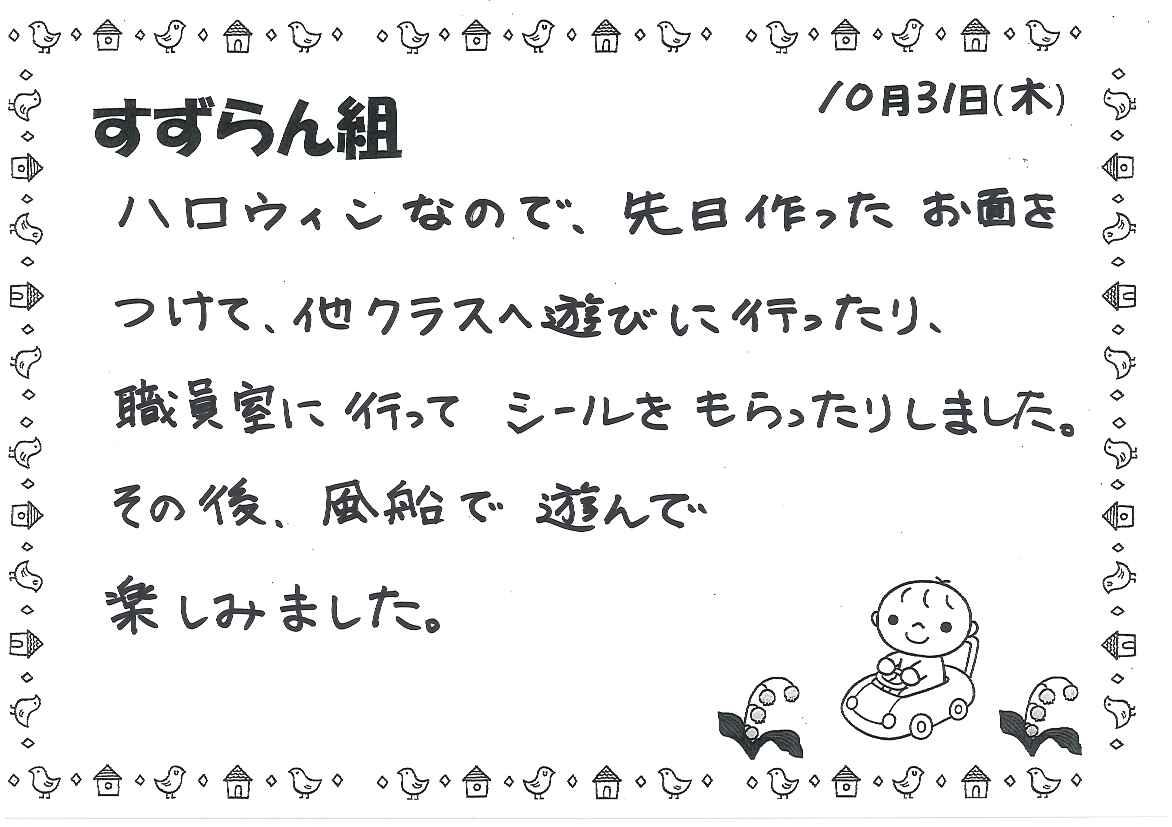 すずらん組
10月31日(木)
ハロウィンなので、先日作ったお面を
つけて、他クラスへ遊びに行ったり、
職員室に行ってシールをもらったりしました。
その後、風船で遊んで
楽しみました。